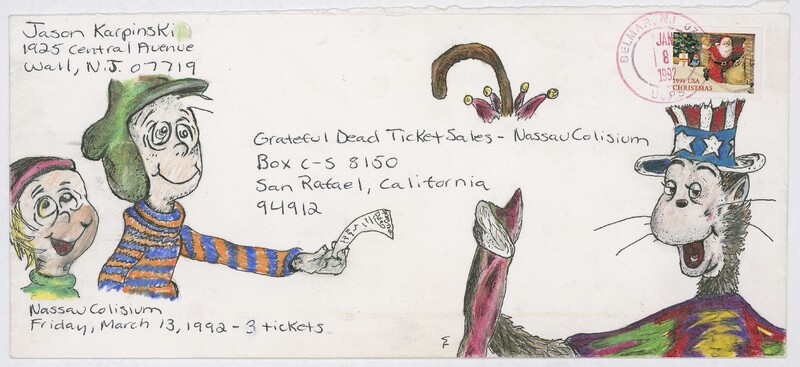 Jason Karpinski
1925 Central Avenue
Wall, N.J. 07719
BELMAR, N.J. 07
JAN
8
1992
USPS
1991 USA
CHRISTMAS
Grateful Dead Ticket Sales - Nassau Colisium
Box C-S 8150
San Rafael, California
94912
Nassau Colisium
Friday, March 13, 1992 - 3 tickets